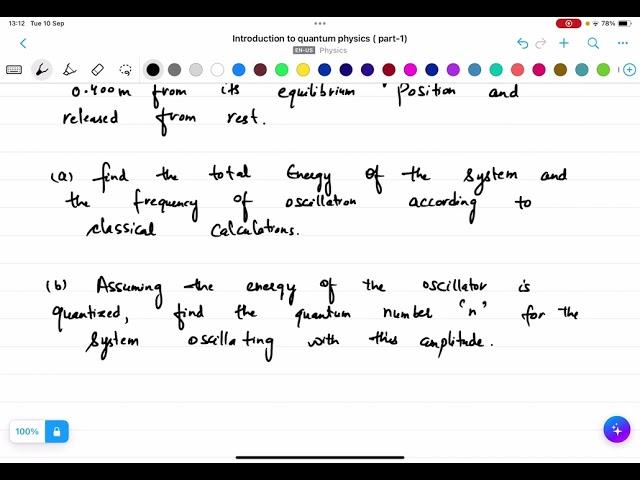 13:12 Tue 10 Sep
78%
Introduction to quantum physics ( part-1)
EN-US Physics
0.400m from its equilibrium Position and
released from rest.
(a) find the total Energy of the system and
the frequency of oscillation according to
classical calculations.
(b) Assuming the energy of the oscillator is
quantized, find the quantum number 'n' for the
system oscillating with this amplitude.
100%